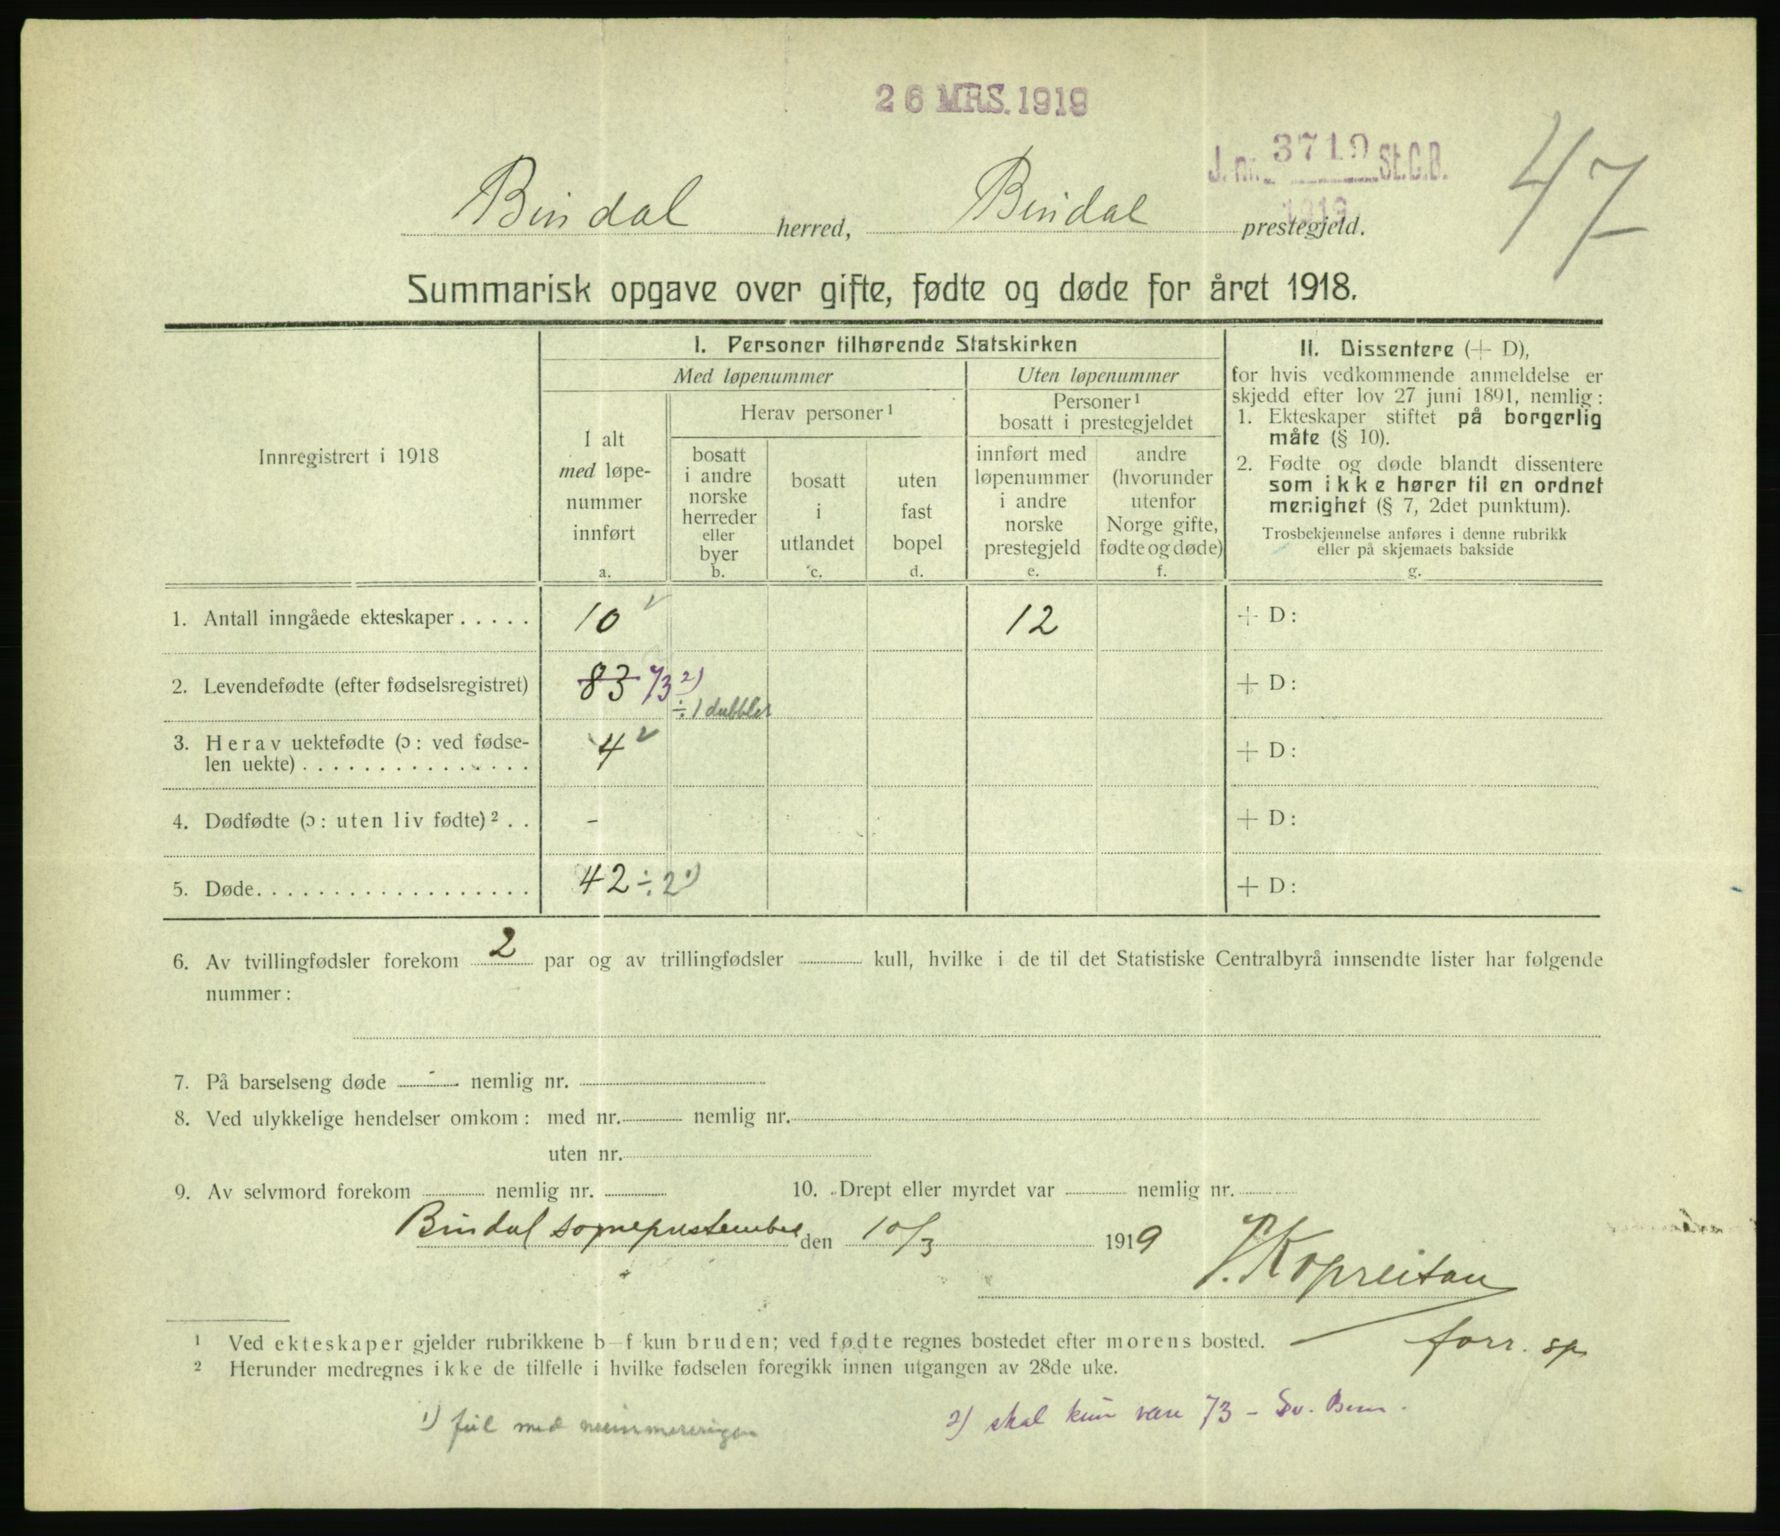 26 MRS. 1919
J. nr. 3719 St.C.B.
1919
47
Bindal herred, Bindal prestegjeld.
Summarisk opgave over gifte, fødte og døde for året 1918.
Innregistrert i 1918
I. Personer tilhørende Statskirken
Med løpenummer
Uten løpenummer
Herav personer¹
Personer¹
bosatt i prestegjeldet
I alt
med løpe-
nummer
innført
a.
bosatt
i andre
norske
herreder
eller
byer
b.
bosatt
i
utlandet
c.
uten
fast
bopel
d.
innført med
løpenummer
i andre
norske
prestegjeld
e.
andre
(hvorunder
utenfor
Norge gifte,
fødte og døde)
f.
II. Dissentere (+ D),
for hvis vedkommende anmeldelse er
skjedd efter lov 27 juni 1891, nemlig:
1. Ekteskaper stiftet på borgerlig
måte (§ 10).
2. Fødte og døde blandt dissentere
som ikke hører til en ordnet
menighet (§ 7, 2det punktum).
Trosbekjennelse anføres i denne rubrikk
eller på skjemaets bakside
g.
1. Antall inngåede ekteskaper . . . . . 10 ✓ 12 + D:
2. Levendefødte (efter fødselsregistret) 83 73 2) + D:
÷ 1 dubblet
3. Herav uektefødte (ɔ: ved fødse-
len uekte) . . . . . . . . . . . . . . . 4 ✓ + D:
4. Dødfødte (ɔ: uten liv fødte)² . . - + D:
5. Døde. . . . . . . . . . . . . . . . . . 42 ÷ 2 1) + D:
6. Av tvillingfødsler forekom 2 par og av trillingfødsler ........ kull, hvilke i de til det Statistiske Centralbyrå innsendte lister har følgende
nummer:
7. På barselseng døde - nemlig nr.
8. Ved ulykkelige hendelser omkom: med nr. ........ nemlig nr.
uten nr.
9. Av selvmord forekom ........ nemlig nr. ........ 10. Drept eller myrdet var ........ nemlig nr.
Bindal sogneprestembed den 10/3 1919
Kopreitan
forr. sp.
¹ Ved ekteskaper gjelder rubrikkene b—f kun bruden; ved fødte regnes bostedet efter morens bosted.
² Herunder medregnes ikke de tilfelle i hvilke fødselen foregikk innen utgangen av 28de uke.
1) feil med nummereringen
2) skal kun være 73 -